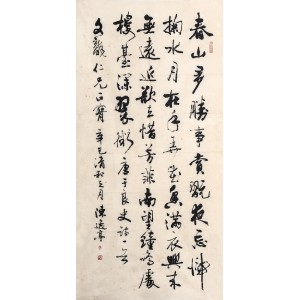 春山多勝事賞翫夜忘歸
掬水月在手弄花香滿衣興來
無遠近欲去惜芳菲南望鐘鳴處
樓臺深翠微 唐于良史詩一首
文 仁兄正賞 辛巳清和之月 陳